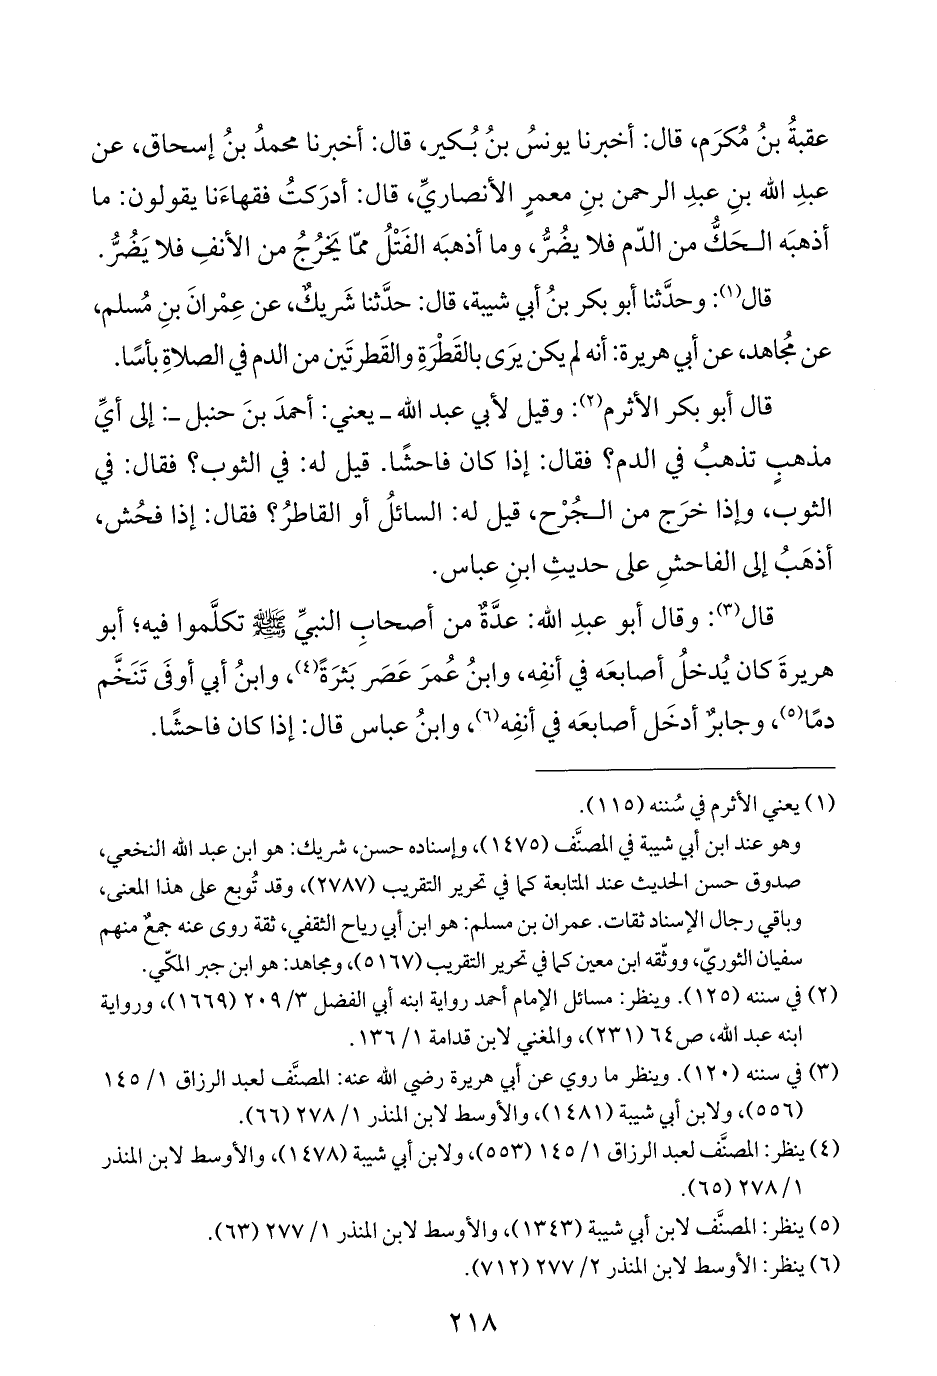 عقبةُ بنُ مُكرَم، قال: أخبرنا يونسُ بنُ بُكير، قال: أخبرنا محمدُ بنُ إسحاق، عن
عبدِ الله بنِ عبدِ الرحمن بنِ معمرٍ الأنصاريِّ، قال: أدرَكتُ فقهاءَنا يقولون: ما
أذهبَه الحَكُّ من الدّم فلا يضُرُّ، وما أذهبَه الفَتْلُ ممّا يَخرُجُ من الأنفِ فلا يَضُرُّ.
قال(١): وحدَّثنا أبو بكر بنُ أبي شيبة، قال: حدَّثنا شَريكٌ، عن عِمْرانَ بنِ مُسلم،
عن مُجاهد، عن أبي هريرة: أنه لم يكن يرَى بالقَطْرَةِ والقَطرتَين من الدم في الصلاةِ بأسًا.
قال أبو بكر الأثرم(٢): وقيل لأبي عبد الله ـ يعني: أحمدَ بنَ حنبل ـ: إلى أيِّ
مذهبٍ تذهبُ في الدم؟ فقال: إذا كان فاحشًا. قيل له: في الثوب؟ فقال: في
الثوب، وإذا خرَج من الجُرْح، قيل له: السائلُ أو القاطرُ؟ فقال: إذا فحُش،
أذهَبُ إلى الفاحشِ على حديثِ ابنِ عباس.
قال(٣): وقال أبو عبدِ الله: عدَّةٌ من أصحابِ النبيِّ ﷺ تكلَّموا فيه؛ أبو
هريرةَ كان يُدخلُ أصابعَه في أنفِه، وابنُ عُمرَ عَصَر بَثرَةً(٤)، وابنُ أبي أوفَى تَنَخَّم
دمًا(٥)، وجابرٌ أدخَل أصابعَه في أنفِه(٦)، وابنُ عباس قال: إذا كان فاحشًا.
(١) يعني الأثرم في سُننه (١١٥).
وهو عند ابن أبي شيبة في المصنَّف (١٤٧٥)، وإسناده حسن، شريك: هو ابن عبد الله النخعي،
صدوق حسن الحديث عند المتابعة كما في تحرير التقريب (٢٧٨٧)، وقد تُوبع على هذا المعنى،
وباقي رجال الإسناد ثقات. عمران بن مسلم: هو ابن أبي رياح الثقفي، ثقة روى عنه جمعٌ منهم
سفيان الثوريّ، ووثّقه ابن معين كما في تحرير التقريب (٥١٦٧)، ومجاهد: هو ابن جبر المكّي.
(٢) في سننه (١٢٥). وينظر: مسائل الإمام أحمد رواية ابنه أبي الفضل ٣/ ٢٠٩ (١٦٦٩)، ورواية
ابنه عبد الله، ص٦٤ (٢٣١)، والمغني لابن قدامة ١/ ١٣٦.
(٣) في سننه (١٢٠). وينظر ما روي عن أبي هريرة رضي الله عنه: المصنَّف لعبد الرزاق ١/ ١٤٥
(٥٥٦)، ولابن أبي شيبة (١٤٨١)، والأوسط لابن المنذر ١/ ٢٧٨ (٦٦).
(٤) ينظر: المصنَّف لعبد الرزاق ١/ ١٤٥ (٥٥٣)، ولابن أبي شيبة (١٤٧٨)، والأوسط لابن المنذر
١/ ٢٧٨ (٦٥).
(٥) ينظر: المصنَّف لابن أبي شيبة (١٣٤٣)، والأوسط لابن المنذر ١/ ٢٧٧ (٦٣).
(٦) ينظر: الأوسط لابن المنذر ٢/ ٢٧٧ (٧١٢).
٢١٨